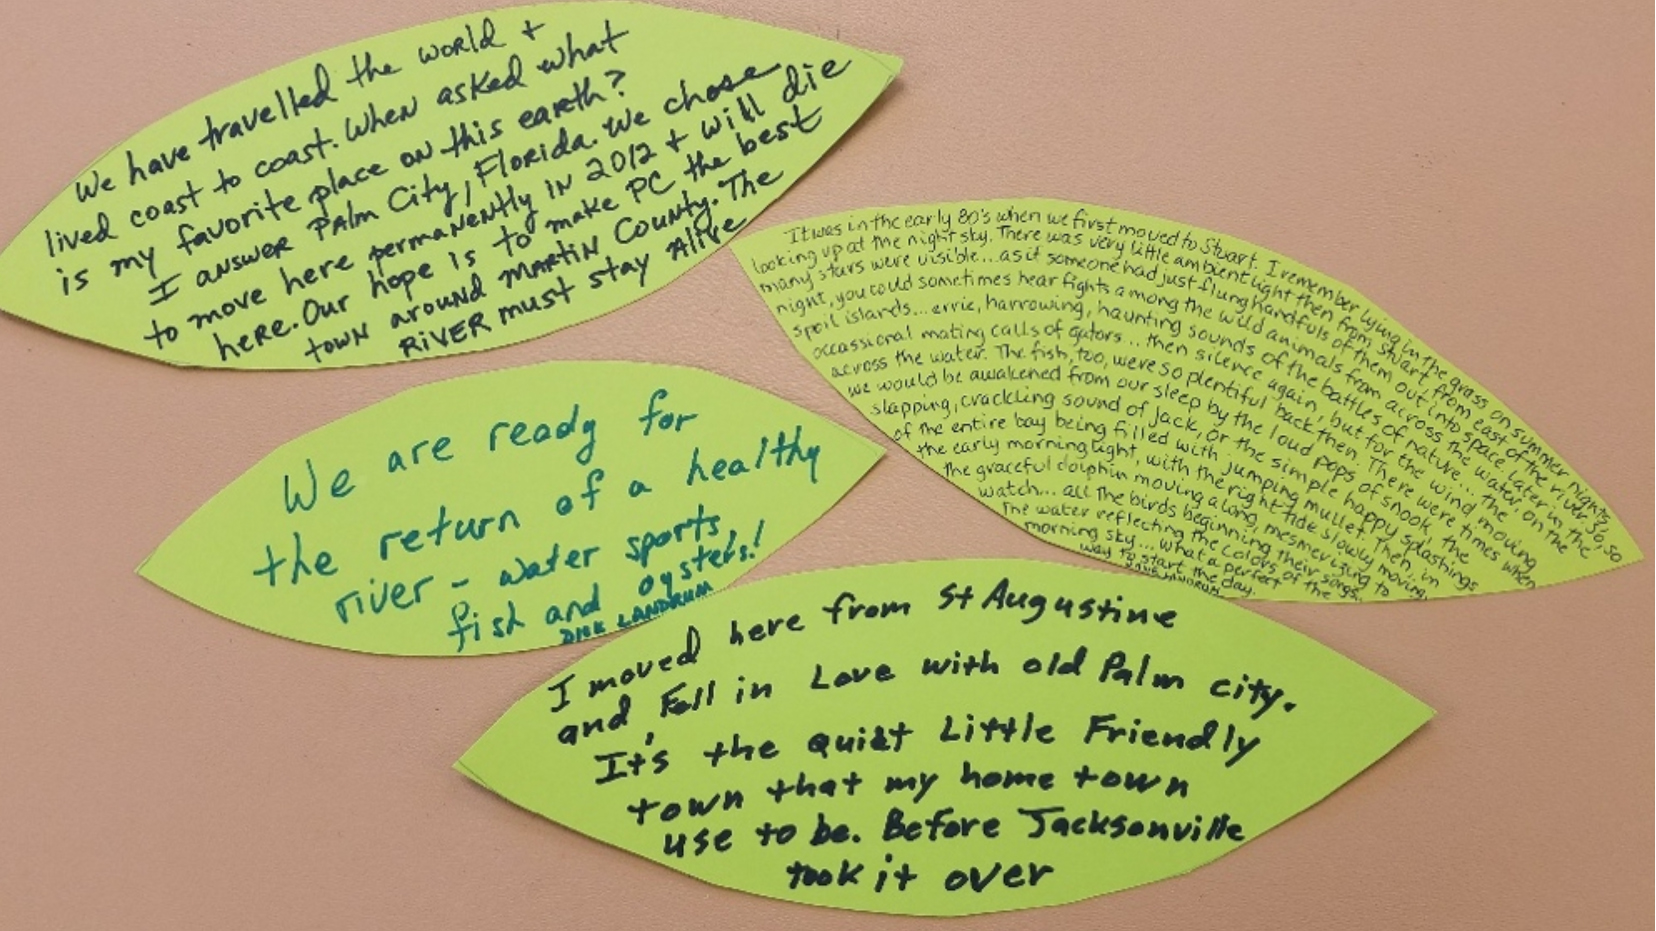 We have travelled the world +
lived coast to coast. When asked what
is my favorite place on this earth?
I answer Palm City, Florida. We chose
to move here permanently in 2012 + will die
here. Our hope is to make PC the best
town around Martin County. The
River must stay Alive
It was in the early 80's when we first moved to Stuart. I remember lying in the grass on summer nights,
looking up at the night sky. There was very little ambient light then from Stuart from east of the river. So, so
many stars were visible... as if someone had just flung handfuls of them out into space. Later in the
night, you could sometimes hear fights among the wild animals from across the water, on the
spoil islands... errie, harrowing, haunting sounds of the battles of nature... the
occassional mating calls of gators... then silence again, but for the wind moving
across the water. The fish, too, were so plentiful back then. There were times when
we would be awakened from our sleep by the loud pops of snook, the
slapping, crackling sound of jack, or the simple happy splashings
of the entire bay being filled with jumping mullet. Then, in
the early morning light, with the right tide slowly moving,
the graceful dolphin moving along, mesmerizing to
watch... all the birds beginning their songs...
the water reflecting the colors of the
morning sky... what a perfect
way to start the day.
We are ready for
the return of a healthy
river - water sports,
fish and oysters!!
DICK LANDRUM
I moved here from St Augustine
and, Fell in Love with old Palm city.
It's the quiet Little Friendly
town that my home town
use to be. Before Jacksonville
took it over